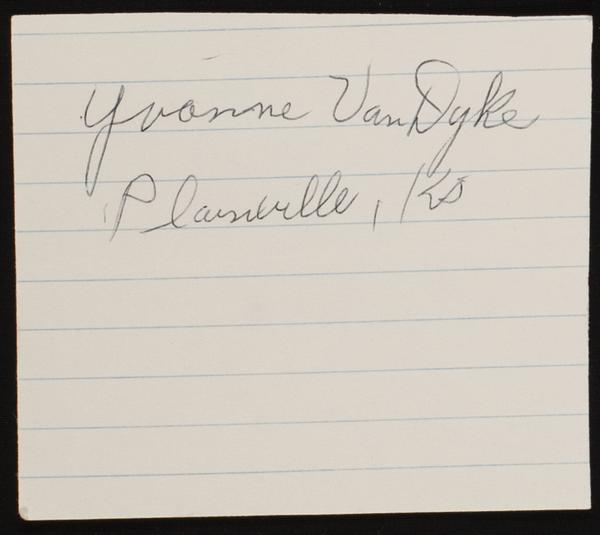 Yvonne VanDyke
Plainville, Ks